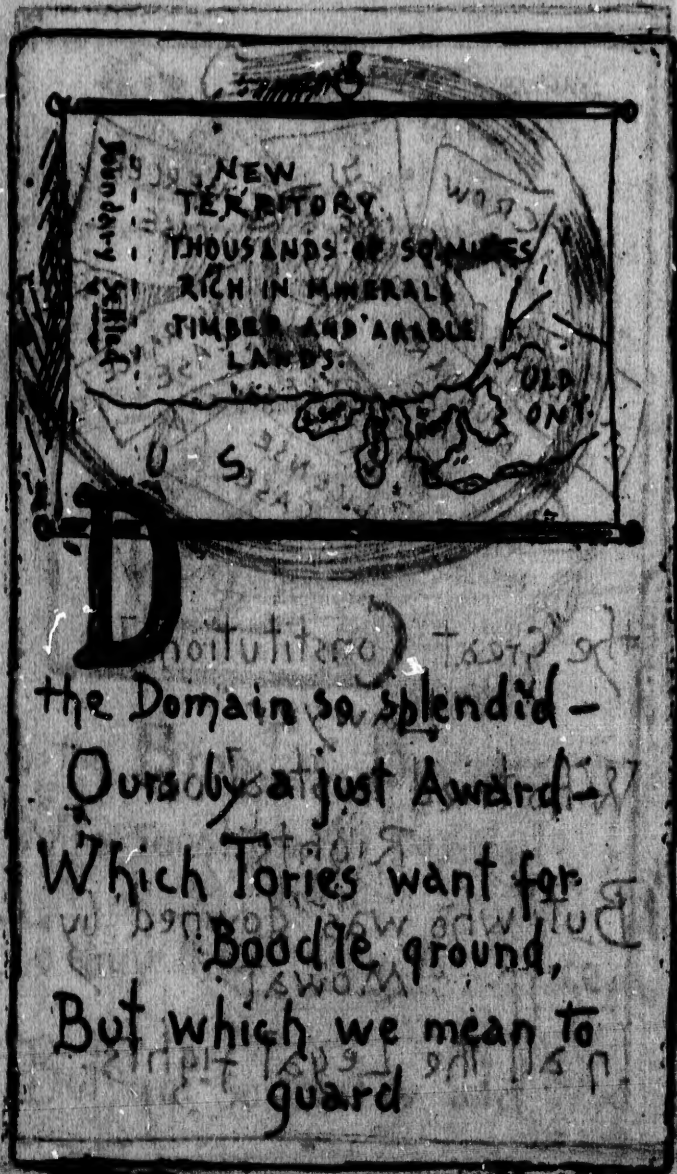 NEW
TERRITORY.
THOUSANDS OF SQ. MILES
RICH IN MINERALS
TIMBER AND ARABLE
LANDS.
Boundary Settled
OLD
ONT.
U S
D
the Domain so splendid –
Ours by a just Award –
Which Tories want for
Boodle ground,
But which we mean to
guard